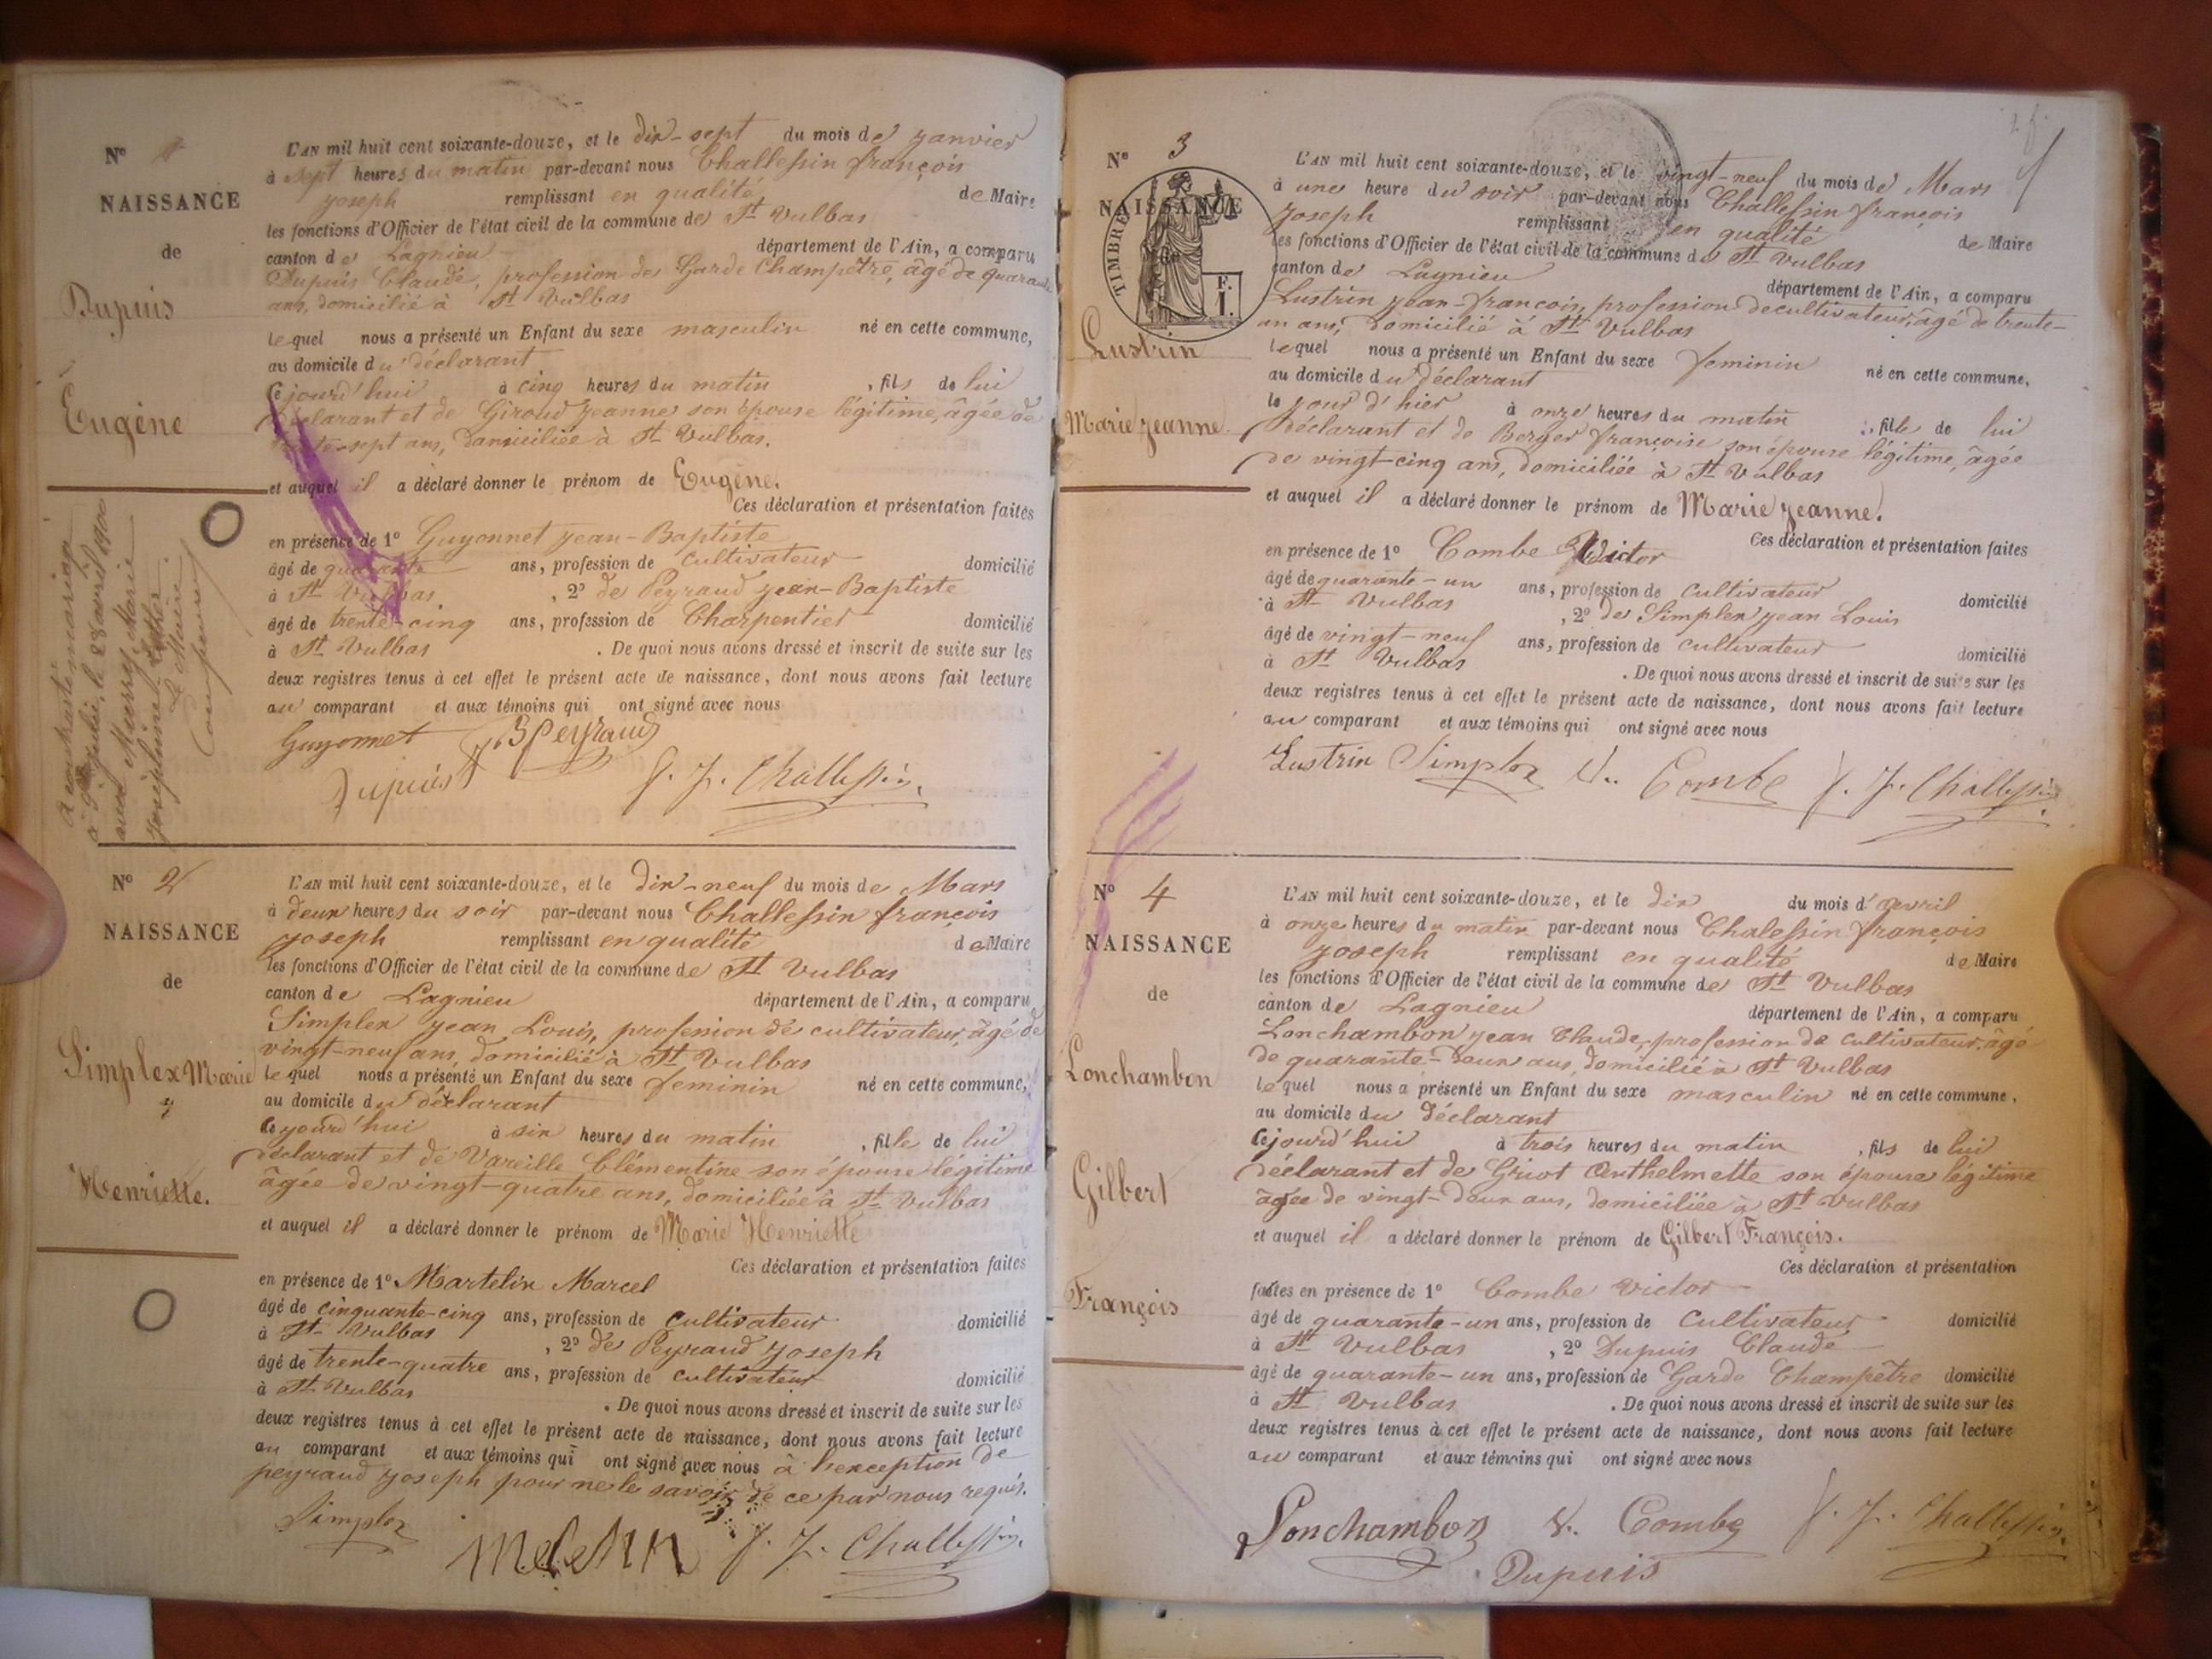 N° 1
NAISSANCE
de
Dupuis
Eugène
L'AN mil huit cent soixante-douze, et le dix-sept du mois de janvier
à sept heures du matin par-devant nous Challessin françois
joseph remplissant en qualité de Maire
les fonctions d'Officier de l'état civil de la commune de St Vulbas
canton de Lagnieu département de l'Ain, a comparu
Dupuis Claude, profession de Garde Champêtre, âgé de quarante
ans, domicilié à St Vulbas
lequel nous a présenté un Enfant du sexe masculin né en cette commune,
au domicile du déclarant
Cejourd'hui à cinq heures du matin, fils de lui
déclarant et de Giroud jeanne son épouse légitime, âgée de
sept ans, domiciliée à St Vulbas.
et auquel il a déclaré donner le prénom de Eugène.
Ces déclaration et présentation faites
en présence de 1° Guyonnet jean-Baptiste
âgé de quarante ans, profession de cultivateur domicilié
à St Vulbas, 2° de Peyraud jean-Baptiste
âgé de trente-cinq ans, profession de Charpentier domicilié
à St Vulbas. De quoi nous avons dressé et inscrit de suite sur les
deux registres tenus à cet effet le présent acte de naissance, dont nous avons fait lecture
au comparant et aux témoins qui ont signé avec nous
Guyonnet JB Peyraud
Dupuis f. J. Challessin.
A contracté mariage
le 28 avril 1900
avec Marie
joséphine
Le Maire
N° 2
NAISSANCE
de
Simplex Marie
Henriette.
L'AN mil huit cent soixante-douze, et le dix-neuf du mois de Mars
à deux heures du soir par-devant nous Challessin françois
joseph remplissant en qualité de Maire
les fonctions d'Officier de l'état civil de la commune de St Vulbas
canton de Lagnieu département de l'Ain, a comparu
Simplex jean Louis, profession de cultivateur, âgé de
vingt-neuf ans, domicilié à St Vulbas
lequel nous a présenté un Enfant du sexe feminin né en cette commune,
au domicile du déclarant
Cejourd'hui à six heures du matin, fille de lui
déclarant et de Vareille Clémentine son épouse légitime
âgée de vingt-quatre ans, domiciliée à St Vulbas
et auquel il a déclaré donner le prénom de Marie Henriette
Ces déclaration et présentation faites
en présence de 1° Martelin Marcel
âgé de cinquante-cinq ans, profession de cultivateur domicilié
à St Vulbas, 2° de Peyraud joseph
âgé de trente-quatre ans, profession de cultivateur domicilié
à St Vulbas. De quoi nous avons dressé et inscrit de suite sur les
deux registres tenus à cet effet le présent acte de naissance, dont nous avons fait lecture
au comparant et aux témoins qui ont signé avec nous à l'exception de
peyraud joseph pour ne le savoir de ce par nous requis.
Simplex f. J. Challessin.
N° 3
NAISSANCE
TIMBRE
F. 1.
Lustrin
Marie jeanne
L'AN mil huit cent soixante-douze, et le vingt-neuf du mois de Mars
à une heure du soir par-devant nous Challessin françois
joseph remplissant en qualité de Maire
les fonctions d'Officier de l'état civil de la commune de St Vulbas
canton de Lagnieu département de l'Ain, a comparu
Lustrin jean-françois, profession de cultivateur, âgé de trente-
un ans, domicilié à St Vulbas
lequel nous a présenté un Enfant du sexe feminin né en cette commune,
au domicile du déclarant
le jour d'hier à onze heures du matin, fille de lui
déclarant et de Berger françoise son épouse légitime, âgée
de vingt-cinq ans, domiciliée à St Vulbas
et auquel il a déclaré donner le prénom de Marie jeanne.
Ces déclaration et présentation faites
en présence de 1° Combe Victor
âgé de quarante-un ans, profession de cultivateur domicilié
à St Vulbas, 2° de Simplex jean Louis
âgé de vingt-neuf ans, profession de cultivateur domicilié
à St Vulbas. De quoi nous avons dressé et inscrit de suite sur les
deux registres tenus à cet effet le présent acte de naissance, dont nous avons fait lecture
au comparant et aux témoins qui ont signé avec nous
Lustrin Simplex V. Combe f. J. Challessin.
N° 4
NAISSANCE
de
Lonchambon
Gilbert
François
L'AN mil huit cent soixante-douze, et le dix du mois d'avril
à onze heures du matin par-devant nous Chalessin françois
joseph remplissant en qualité de Maire
les fonctions d'Officier de l'état civil de la commune de St Vulbas
canton de Lagnieu département de l'Ain, a comparu
Lonchambon jean Claude, profession de cultivateur, âgé
de quarante-deux ans, domicilié à St Vulbas
lequel nous a présenté un Enfant du sexe masculin né en cette commune,
au domicile du déclarant
Cejourd'hui à trois heures du matin, fils de lui
déclarant et de Griot Anthelmette son épouse légitime
âgée de vingt-deux ans, domiciliée à St Vulbas
et auquel il a déclaré donner le prénom de Gilbert François.
Ces déclaration et présentation
faites en présence de 1° Combe Victor
âgé de quarante-un ans, profession de cultivateur domicilié
à St Vulbas, 2° Dupuis Claude
âgé de quarante-un ans, profession de Garde Champêtre domicilié
à St Vulbas. De quoi nous avons dressé et inscrit de suite sur les
deux registres tenus à cet effet le présent acte de naissance, dont nous avons fait lecture
au comparant et aux témoins qui ont signé avec nous
Lonchambon V. Combe f. J. Challessin.
Dupuis